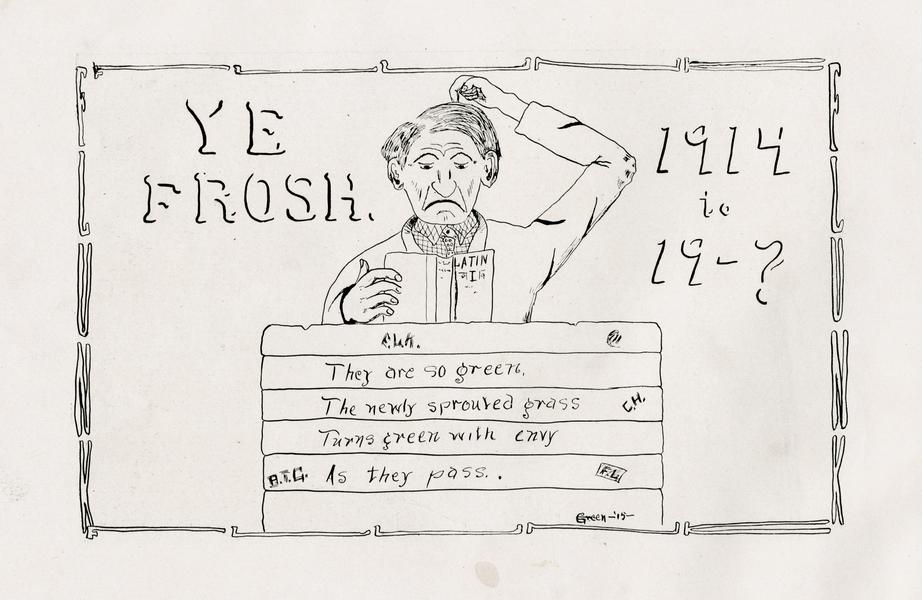 YE
FROSH.
1914
to
19-?
LATIN
I
They are so green,
The newly sprouted grass
C.H.
Turns green with envy
B.T.G.
As they pass..
F.L.
Green -'15-